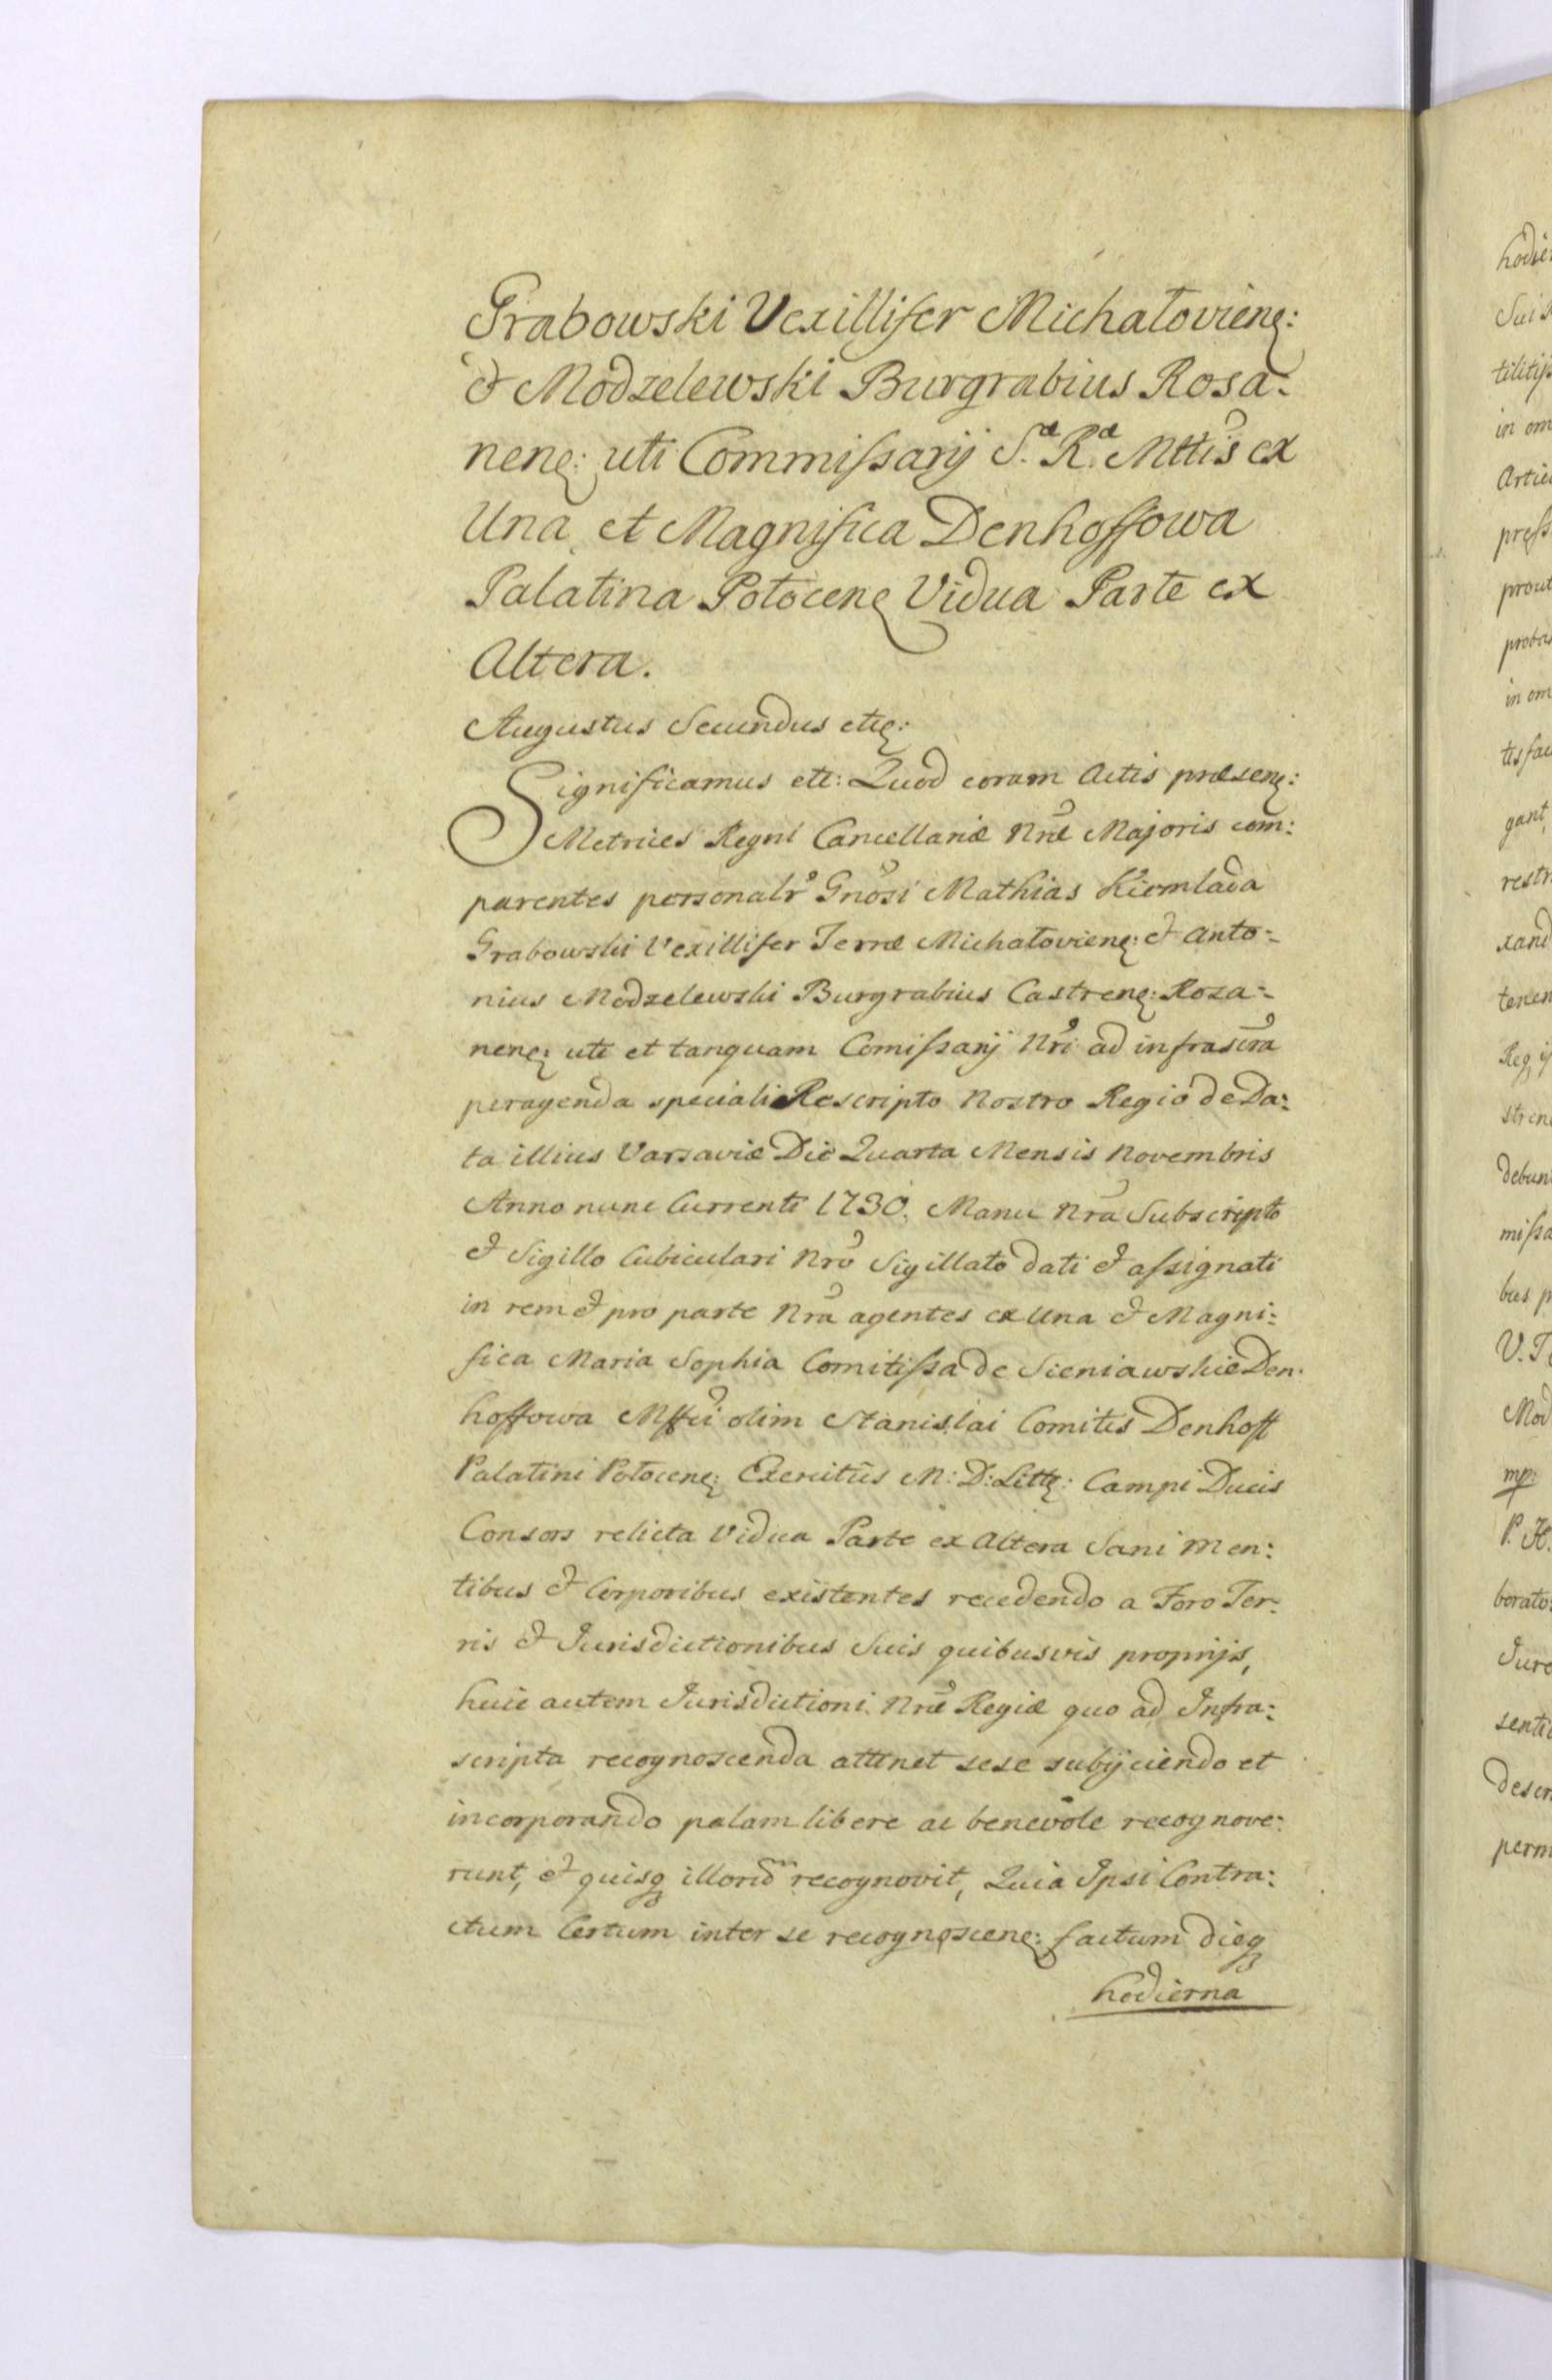 Grabowski Vexillifer Michałovienę:
& Modzelewski Burgrabius Rosa:
nenę: uti Commißarij S.æ R.æ Mttis ex
Una, et Magnifica Denhoffowa
Palatina Połocenę Vidua Parte ex
Altera.
Augustus Secundus etcę:
Significamus etc: Quod coram Actis præsenę:
Metrices Regni Cancellariæ Nræ Majoris com:
parentes personalr Gnosi Mathias
Grabowski Vexillifer Terræ Michałovienę: & Anto:
nius Modzelewski Burgrabius Castrenę: Roza:
nenę: uti et tanquam Comißarij Nri ad infrascra
peragenda speciali Rescripto Nostro Regio de Da:
ta illius Varsaviæ Die Quarta Mensis Novembris
Anno nunc Currenti 1730. Manu Nra Subscripto
& Sigillo Cubiculari Nro Sigillato dati & aßignati
in rem & pro parte Nra agentes ex Una & Magni:
fica Maria Sophia Comitißa de Sieniawskie Den:
hoffowa Mffci olim Stanislai Comitis Denhoff
Palatini Połocenę: Exercitus M: D: Littę: Campi Ducis
Consors relicta Vidua Parte ex Altera Sani Men:
tibus & Corporibus existentes recedendo a Foro Ter:
ris & Jurisdictionibus Suis quibusvis proprijs,
huic autem Jurisdictioni Nræ Regiæ quo ad Infra:
scripta recognoscenda attinet sese subijciendo et
incorporando palam libere ac benevole recognove:
runt, & quisq illorum recognovit, Quia Ipsi Contra:
ctum Certum inter se recognoscenę: factum dieq
hodierna